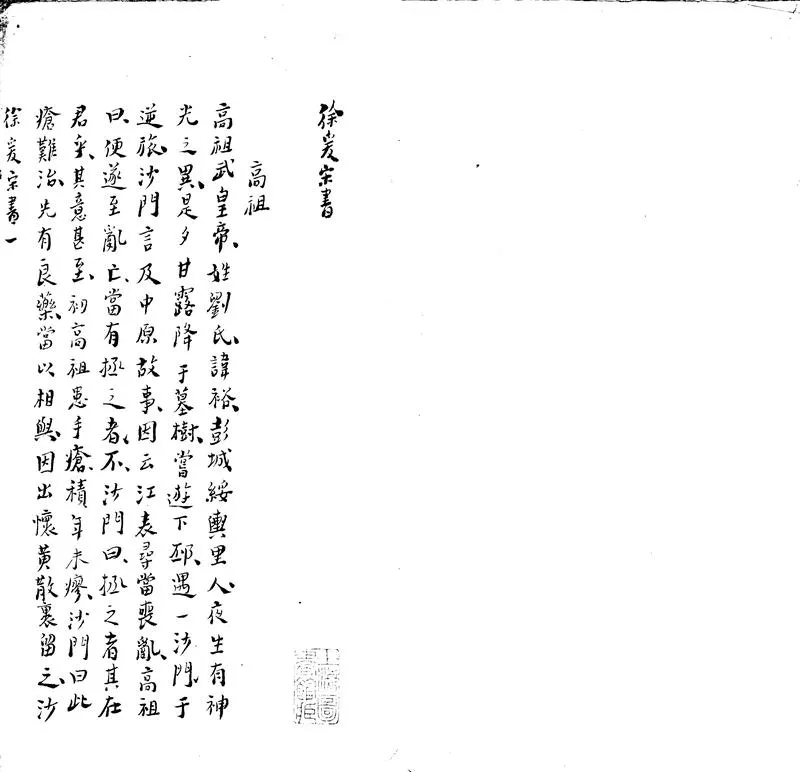 徐爰宋書
高祖
高祖武皇帝、姓劉氏、諱裕、彭城綏輿里人、夜生有神
光之異、是夕甘露降于墓樹、嘗遊下邳、遇一沙門、于
逆旅、沙門言及中原故事、因云江表尋當喪亂、高祖
曰、便遂至亂亡、當有拯之者、不、沙門曰、拯之者其在
君乎、其意甚至、初高祖患手瘡、積年未瘳、沙門曰此
瘡難治、先有良藥、當以相與、因出懷黃散裹留之、沙
徐爰宋書一
上海圖書館藏